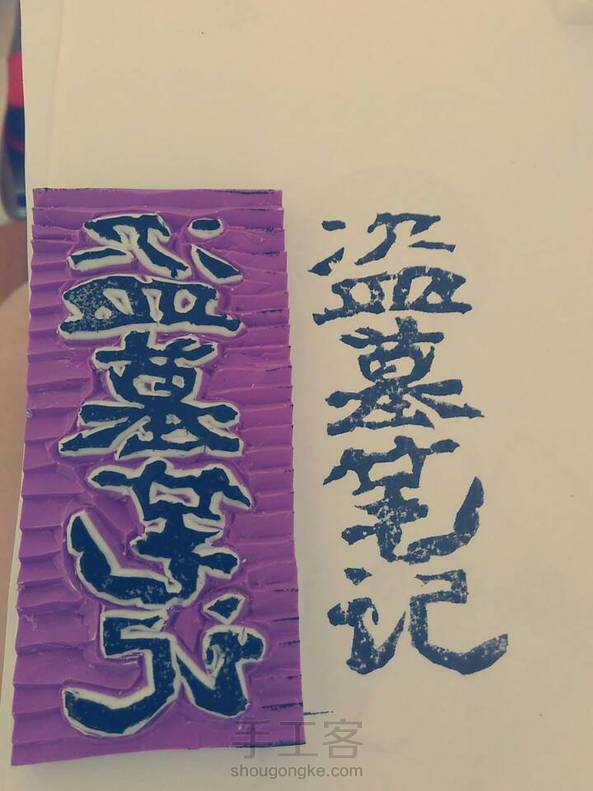 盗墓笔记
盗墓笔记
手工客
shougongke.com